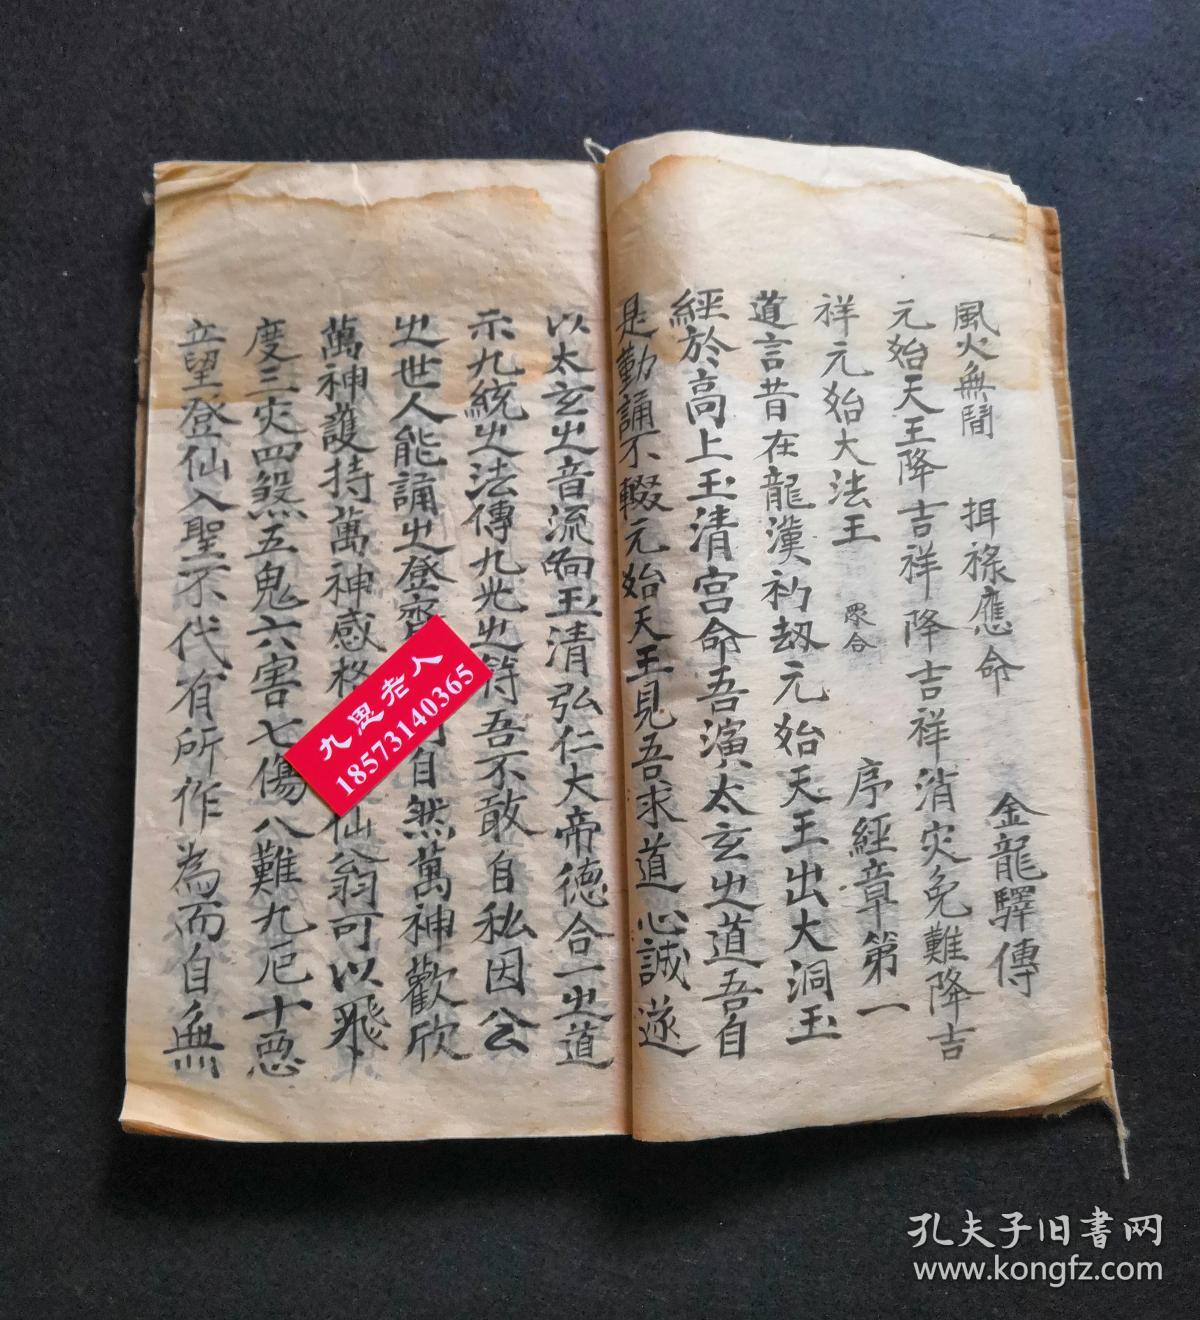 風火無闇 揖祿應命 金龍驛傳
元始天王降吉祥降吉祥消灾免難降吉
祥元始大法王 眾合 序經章第一
道言昔在龍漢初劫元始天王出大洞玉
經於高上玉清宫命吾演太玄㞢道吾自
是勤誦不輟元始天王見吾求道心誠遂
以太玄㞢音流响玉清弘仁大帝德合一㞢道
示九統㞢法傳九光㞢符吾不敢自私因公
㞢世人能誦㞢登齋 自然萬神歡欣
萬神護持萬神感格 仙翁可以飛
度三灾四煞五鬼六害七傷八難九厄十惡
立望登仙入聖不代有所作為而自無
九思老人
18573140365
孔夫子旧书网
www.kongfz.com